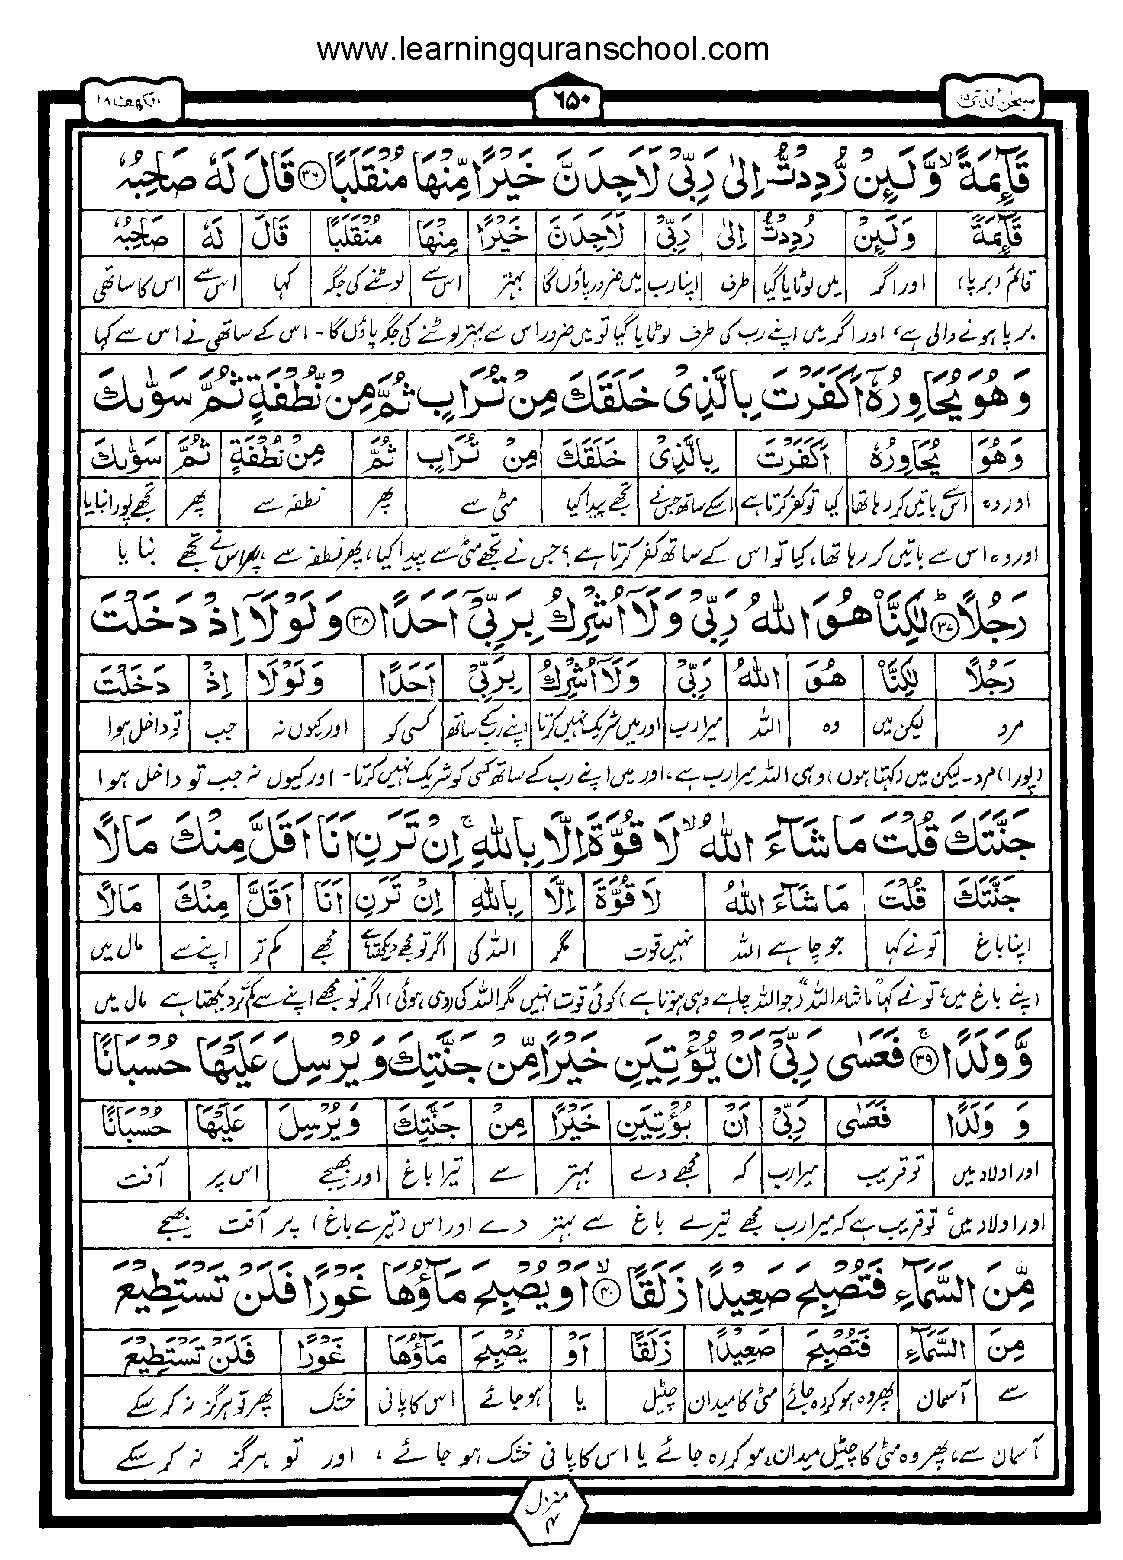 www.learningquranschool.com
سبحٰن الذی ۱۵
۶۵۰
الکهف ۱۸
قَآئِمَةً ۙ وَّلَئِنْ رُّدِدْتُّ اِلٰی رَبِّیْ لَاَجِدَنَّ خَیْرًا مِّنْهَا مُنْقَلَبًا ۳۶ قَالَ لَهٗ صَاحِبُهٗ
قَآئِمَةً وَلَئِنْ رُدِدْتُّ اِلٰی رَبِّیْ لَاَجِدَنَّ خَیْرًا مِنْهَا مُنْقَلَبًا قَالَ لَهٗ صَاحِبُهٗ
قائم (برپا) اور اگر میں لوٹایا گیا طرف اپنا رب میں ضرور پاؤں گا بہتر اس سے لوٹنے کی جگہ کہا اس سے اس کا ساتھی
برپا ہونے والی ہے، اور اگر میں اپنے رب کی طرف لوٹایا گیا تو میں ضرور اس سے بہتر لوٹنے کی جگہ پاؤں گا۔ اس کے ساتھی نے اس سے کہا
وَهُوَ یُحَاوِرُهٗۤ اَكَفَرْتَ بِالَّذِیْ خَلَقَكَ مِنْ تُرَابٍ ثُمَّ مِنْ نُّطْفَةٍ ثُمَّ سَوّٰىكَ
وَهُوَ یُحَاوِرُهٗ اَكَفَرْتَ بِالَّذِیْ خَلَقَكَ مِنْ تُرَابٍ ثُمَّ مِنْ نُطْفَةٍ ثُمَّ سَوّٰىكَ
اور وہ اس سے باتیں کر رہا تھا کیا تو کفر کرتا ہے اسکے ساتھ جس نے تجھے پیدا کیا مٹی سے پھر نطفہ سے پھر تجھے پورا بنایا
اور وہ اس سے باتیں کر رہا تھا، کیا تو اس کے ساتھ کفر کرتا ہے؟ جس نے تجھے مٹی سے پیدا کیا، پھر نطفہ سے، پھر اس نے تجھے بنایا
رَجُلًا ۳۷ لٰكِنَّا۠ هُوَ اللّٰهُ رَبِّیْ وَلَاۤ اُشْرِكُ بِرَبِّیْۤ اَحَدًا ۳۸ وَلَوْلَاۤ اِذْ دَخَلْتَ
رَجُلًا لٰكِنَّا۠ هُوَ اللّٰهُ رَبِّیْ وَلَاۤ اُشْرِكُ بِرَبِّیْ اَحَدًا وَلَوْلَا اِذْ دَخَلْتَ
مرد لیکن میں وہ اللہ میرا رب اور میں شریک نہیں کرتا اپنے رب کے ساتھ کسی کو اور کیوں نہ جب تو داخل ہوا
(پورا) مرد۔ لیکن میں (کہتا ہوں) وہی اللہ میرا رب ہے، اور میں اپنے رب کے ساتھ کسی کو شریک نہیں کرتا۔ اور کیوں نہ جب تو داخل ہوا
جَنَّتَكَ قُلْتَ مَا شَآءَ اللّٰهُ ۙ لَا قُوَّةَ اِلَّا بِاللّٰهِ ۚ اِنْ تَرَنِ اَنَا اَقَلَّ مِنْكَ مَالًا
جَنَّتَكَ قُلْتَ مَا شَآءَ اللّٰهُ لَا قُوَّةَ اِلَّا بِاللّٰهِ اِنْ تَرَنِ اَنَا اَقَلَّ مِنْكَ مَالًا
اپنا باغ تو نے کہا جو چاہے اللہ نہیں قوت مگر اللہ کی اگر تو مجھے دیکھتا ہے مجھے کم تر اپنے سے مال میں
اپنے باغ میں، تو نے کہا "ماشاء اللہ" (جو اللہ چاہے وہی ہوتا ہے) کوئی قوت نہیں مگر اللہ کی (دی ہوئی) اگر تو مجھے اپنے سے کم تر دیکھتا ہے مال میں
وَّوَلَدًا ۚ ۳۹ فَعَسٰی رَبِّیْۤ اَنْ یُّؤْتِیَنِ خَیْرًا مِّنْ جَنَّتِكَ وَیُرْسِلَ عَلَیْهَا حُسْبَانًا
وَ وَلَدًا فَعَسٰی رَبِّیْ اَنْ یُؤْتِیَنِ خَیْرًا مِنْ جَنَّتِكَ وَیُرْسِلَ عَلَیْهَا حُسْبَانًا
اور اولاد میں تو قریب میرا رب کہ مجھے دے بہتر سے تیرا باغ اور بھیجے اس پر آفت
اور اولاد میں، تو قریب ہے کہ میرا رب مجھے تیرے باغ سے بہتر دے اور اس (تیرے باغ) پر آفت بھیجے
مِّنَ السَّمَآءِ فَتُصْبِحَ صَعِیْدًا زَلَقًا ۙ ۴۰ اَوْ یُصْبِحَ مَآؤُهَا غَوْرًا فَلَنْ تَسْتَطِیْعَ
مِنَ السَّمَآءِ فَتُصْبِحَ صَعِیْدًا زَلَقًا اَوْ یُصْبِحَ مَآؤُهَا غَوْرًا فَلَنْ تَسْتَطِیْعَ
سے آسمان پھر وہ ہو کر رہ جائے مٹی کا میدان چٹیل یا ہو جائے اس کا پانی خشک پھر تو ہرگز نہ کر سکے
آسمان سے، پھر وہ مٹی کا چٹیل میدان ہو کر رہ جائے یا اس کا پانی خشک ہو جائے، اور تو ہرگز نہ کر سکے
منزل ۴